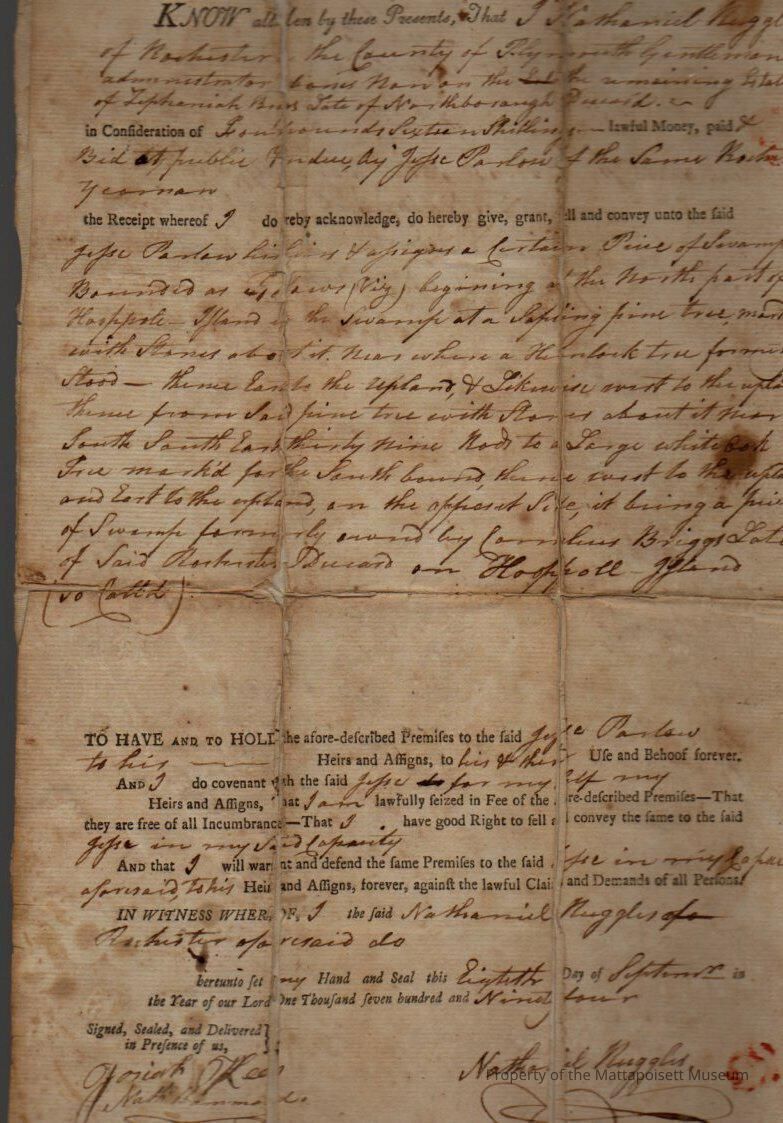 KNOW all Men by these Presents, That I Nathaniel Ruggl
of Rochester the County of Plymouth Gentleman
administrator bonis Non on the the remaining Estat
of Zephaniah late of Northborough Deceasd.
in Consideration of Four pounds Sixteen Shillings lawful Money, paid &
Bid at public Vendue, by Jesse Parlow of the Same Roche
Yeoman
the Receipt whereof I do reby acknowledge, do hereby give, grant, ell and convey unto the said
Jesse Parlow his heirs & assigns a Certain Piece of Swamp
Bounded as Follows (Viz) begining at the North part of
Hooppole-Island in the Swamp at a Sapling pine tree, mark
with Stones about it. Near where a Hemlock tree forme
Stood — thence East to the upland, & Likewise west to the upla
thence from Said pine tree with Stones about it near
South South East thirty nine Rods to a Large white oak
Tree mark'd for the South bound, thence west to the upla
and East to the upland, on the opposet Side, it being a piec
of Swamp formerly owned by Cornelius Briggs Late
of Said Rochester Deceasd on Hooppoll-Island
(so Call'd)
TO HAVE AND TO HOLD the afore-described Premises to the said Jesse Parlow
to his Heirs and Assigns, to his & their Use and Behoof forever.
AND I do covenant with the said Jesse for my self my
Heirs and Assigns, that I am lawfully seized in Fee of the re-described Premises—That
they are free of all Incumbrance—That I have good Right to sell convey the same to the said
Jesse in my Said Capacity
AND that I will warrant and defend the same Premises to the said Jesse in my Capac
aforesaid, to his Heirs and Assigns, forever, against the lawful Claims and Demands of all Persons.
IN WITNESS WHEREOF, I the said Nathaniel Ruggles of
Rochester aforesaid do
hereunto set my Hand and Seal this Eighth Day of Septemr in
the Year of our Lord One Thousand seven hundred and Ninety four
Signed, Sealed, and Delivered
in Presence of us,
Josiah
Nath Nathaniel Ruggles
Property of the Mattapoisett Museum